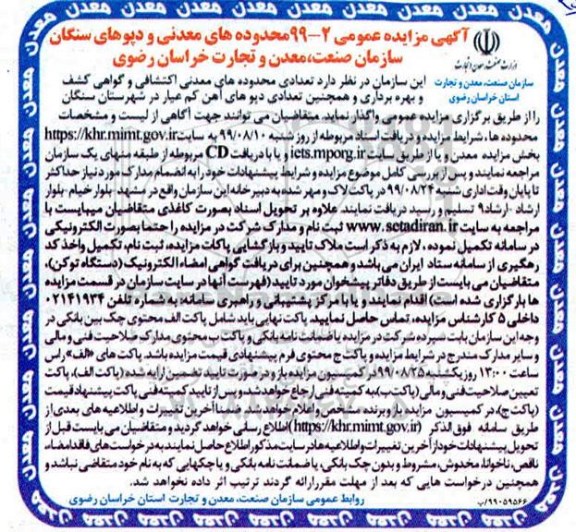 آگهی مزایده عمومی ۲-۹۹ محدوده های معدنی و دپوهای سنگان
سازمان صنعت،معدن و تجارت خراسان رضوی
وزارت صنعت، معدن و تجارت
سازمان صنعت، معدن و تجارت
استان خراسان رضوی
این سازمان در نظر دارد تعدادی محدوده های معدنی اکتشافی و گواهی کشف
و بهره برداری و همچنین تعدادی دپو های آهن کم عیار در شهرستان سنگان
را از طریق برگزاری مزایده عمومی واگذار نماید. متقاضیان می توانند جهت آگاهی از لیست و مشخصات
محدوده ها، شرایط مزایده و دریافت اسناد مربوطه از روز شنبه ۹۹/۰۸/۱۰ به سایت https://khr.mimt.gov.ir
بخش مزایده معدن و یا از طریق سایت iets.mporg.ir و یا با دریافت CD مربوطه از طبقه منهای یک سازمان
مراجعه نمایند و پس از بررسی کامل موضوع مزایده و شرایط پیشنهادات خود را به انضمام مدارک مورد نیاز حداکثر
تا پایان وقت اداری شنبه ۹۹/۰۸/۲۴ در پاکت لاک و مهر شده به دبیرخانه این سازمان واقع در مشهد - بلوار خیام- بلوار
ارشاد - ارشاد۹ تسلیم و رسید دریافت نمایند. علاوه بر تحویل اسناد بصورت کاغذی متقاضیان میبایست با
مراجعه به سایت www.setadiran.ir ثبت نام و مدارک شرکت در مزایده را حتما بصورت الکترونیکی
در سامانه تکمیل نموده ، لازم به ذکر است ملاک تایید و بازگشایی پاکات مزایده، ثبت نام، تکمیل واخذ کد
رهگیری از سامانه ستاد ایران می باشد و همچنین برای دریافت گواهی امضاء الکترونیک (دستگاه توکن)،
متقاضیان می بایست از طریق دفاتر پیشخوان مورد تایید (فهرست آنها در سایت سازمان در قسمت مزایده
ها بارگزاری شده است) اقدام نمایند و یا با مرکز پشتیبانی و راهبری سامانه به شماره تلفن ۰۲۱۴۱۹۳۴
داخلی ۵ کارشناس مزایده، تماس حاصل نمایید. پاکت نهایی باید شامل پاکت الف محتوی چک بین بانکی در
وجه این سازمان بابت سپرده شرکت در مزایده یا ضمانت نامه بانکی و پاکت ب محتوی مدارک صلاحیت فنی و مالی
و سایر مدارک مندرج در شرایط مزایده و پاکت ج محتوی فرم پیشنهادی قیمت مزایده باشد. پاکت های «الف» راس
ساعت ۱۳:۰۰ روز یکشنبه ۹۹/۰۸/۲۵ در کمیسیون مزایده باز و در صورت تایید تضمین ارایه شده (پاکت الف)، پاکت
تعیین صلاحیت فنی و مالی (پاکت ب)، به کمیته فنی ارجاع خواهد شد و پس از تایید کمیته فنی پاکت پیشنهاد قیمت
(پاکت ج)، در کمیسیون مزایده باز و برنده مشخص و اعلام خواهد شد. ضمنا آخرین تغییرات و اطلاعیه های بعدی از
طریق سامانه فوق الذکر (https://khr.mimt.gov.ir) اطلاع رسانی خواهد گردید و متقاضیان می بایست قبل از
تحویل پیشنهادات خود از آخرین تغییرات و اطلاعیه ها در سایت مذکور اطلاع حاصل نمایند به درخواست های فاقد امضاء،
ناقص، ناخوانا، مخدوش، مشروط و بدون چک بانکی، یا ضمانت نامه بانکی و یا چکهایی که به نام خود متقاضی نباشد و
همچنین درخواست هایی که بعد از مهلت مقرر ارائه گردند ترتیب اثر داده نخواهد شد.
روابط عمومی سازمان صنعت، معدن و تجارت استان خراسان رضوی
۹۹۰۵۹۵۶۶/پ